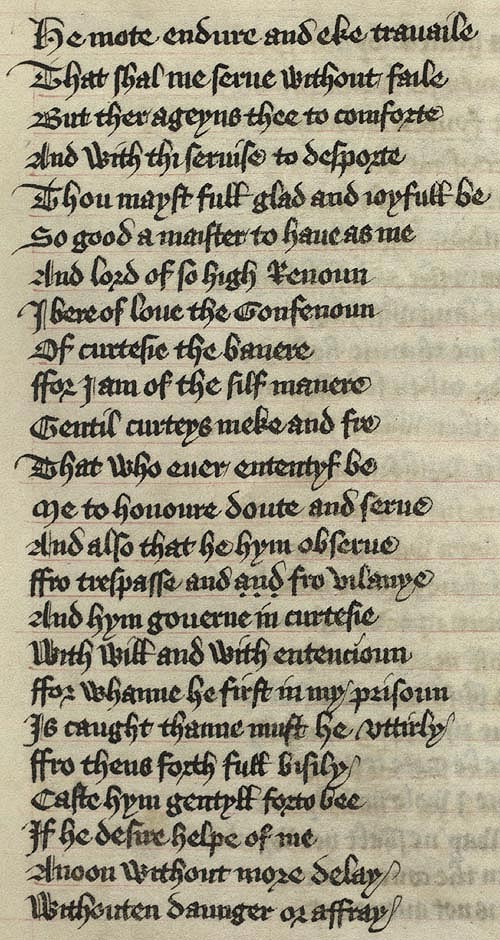 He mote endure and eke trauaile
That shal me serue without faile
But ther ageyns thee to comforte
And with thi seruise to desporte
Thou mayst full glad and ioyfull be
So good a maister to haue as me
And lord of so high Renoun
I bere of loue the Gonfenoun
Of curtesie the banere
ffor I am of the silf manere
Gentil curteys meke and fre
That who euer ententyf be
Me to honoure doute and serue
And also that he hym obserue
ffro trespasse and and fro vilanye
And hym gouerne in curtesie
With will and with entencioun
ffor whanne he first in my prisoun
Is caught thanne must he vttirly
ffro thens forth full bisily
Caste hym gentyll forto bee
If he desire helpe of me
Anoon without more delay
Withouten daunger or affray